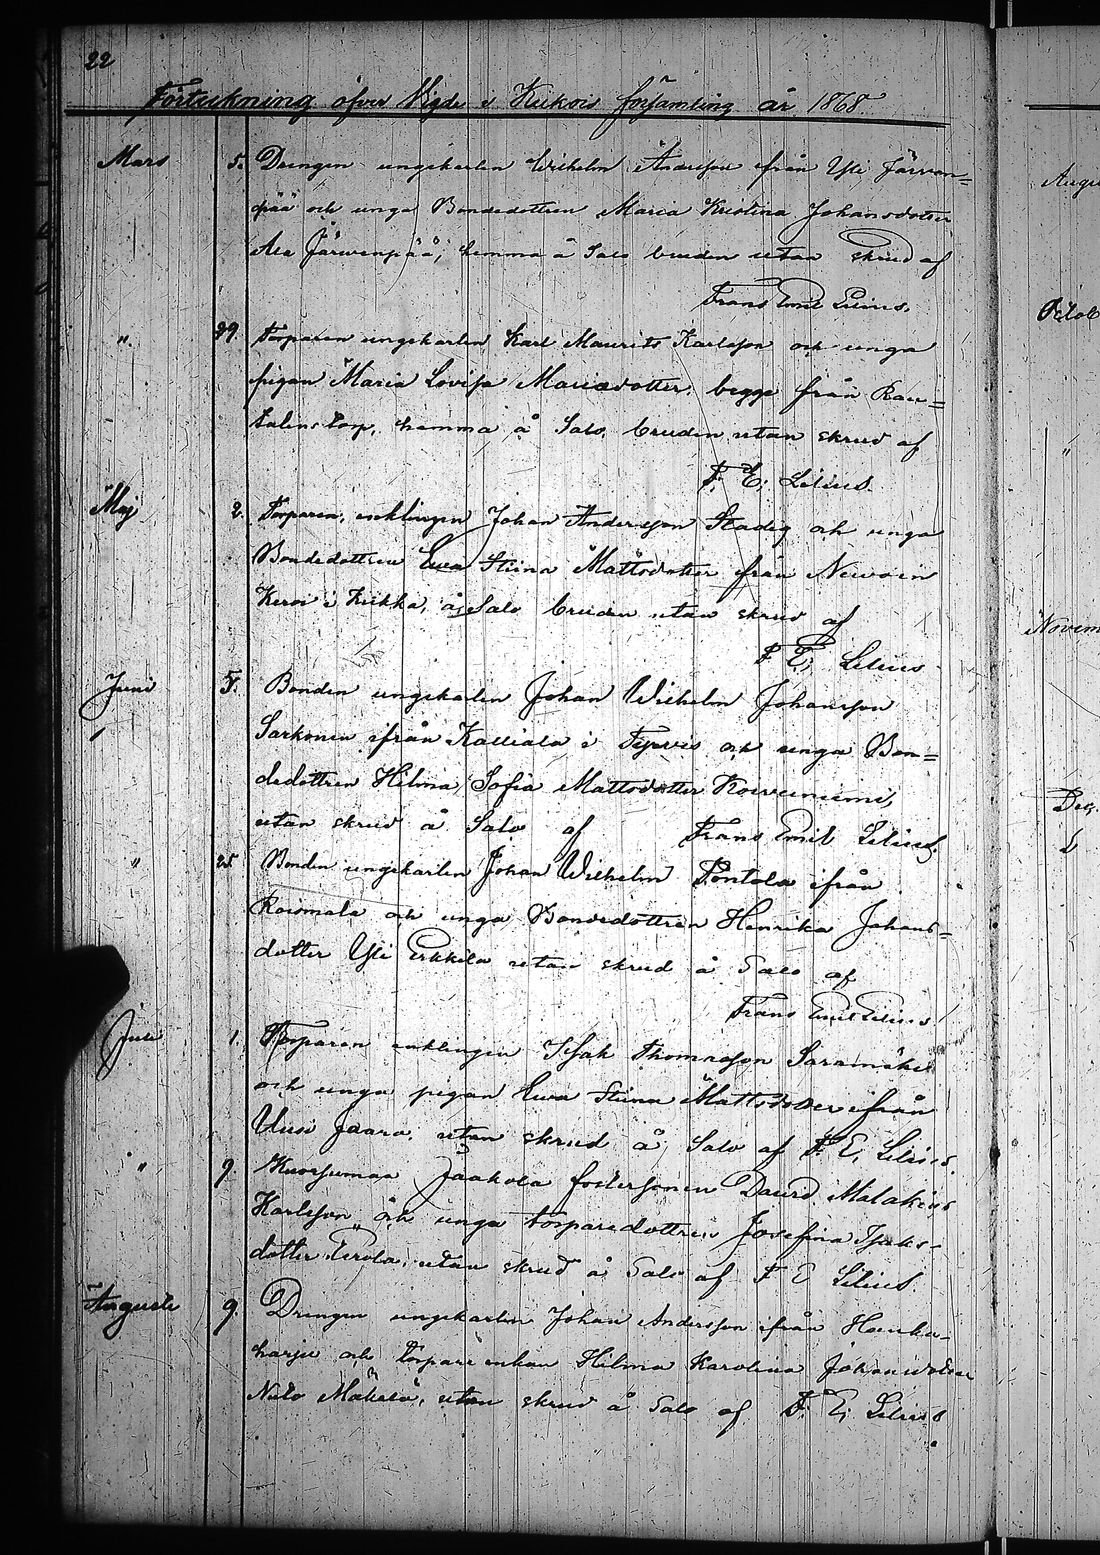 22
Förteckning öfver Vigde i Kiikois församling år 1868.
Mars 5. Drengen ungekarlen Wilhelm Andersson från Yli Järven=
pää och unga Bondedottren Maria Kristina Johansdotter
Ala Järwenpää, hemma å Salo bruden utan skrud af
Frans Emil Lilius.
" 29. Torparen ungekarlen Karl Maurits Karlsson och unga
pigan Maria Lovisa Mariædotter, begge från Rau=
talins torp, hemma å Salo, bruden utan skrud af
F. E. Lilius.
Maj 2. Torparen, enklingen Johan Andersson Stadig och unga
Bondedottren Ewa Stiina Mattsdotter från
i Kiikka, å Salo bruden utan skrud af
F. E. Lilius
Juni 5. Bonden ungekarlen Johan Wilhelm Johansson
Sarkonen ifrån Kalliala i Tyrvis och unga Bon=
dedottren Hilma Sofia Mattsdotter Koivuniemi,
utan skrud å Salo af Frans Emil Lilius
" 25. Bonden ungekarlen Johan Wilhelm Pontela ifrån
Roismala och unga Bondedottren Henrika Johans=
dotter Yli Erkkilä utan skrud å Salo af
Frans Emil Lilius
Juli 1. Torparen enklingen Isak Thomasson Saramäki
och unga pigan Ewa Stiina Mattsdotter ifrån
Uusi Jaara, utan skrud å Salo af F. E. Lilius.
" 9. Kuorsumaa Jaakola fostersonen David Malakias
Karlsson och unga torparedottren Josefina Isaks-
dotter Perola, utan skrud å Salo af F E Lilius.
Augusti 9. Drengen ungekarlen Johan Andersson från Houhu-
harju och Torpare enkan Hilma Karolina Johansdotter
Niilo Mäkelä, utan skrud å Salo af F. E. Lilius
Augu
Octob
"
Novem
Dec.